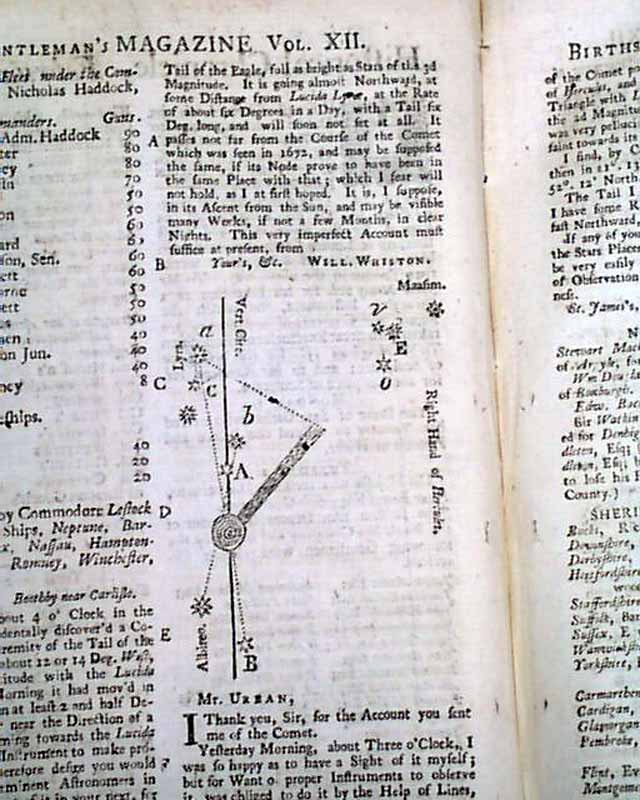 NTLEMAN's MAGAZINE VOL. XII.
Fleet under the Com-
Nicholas Haddock,
manders. Guns.
Adm. Haddock 90
80
80
70
50
50
60
ard 6
son, Sen. 60
ett 60
50
ett 50
50
40
on Jun. 40
40
ncy 8
ships.
40
20
20
by Commodore Lestock
Ships, Neptune, Bar-
Nassau, Hampton-
Romney, Winchester,
Beethby near Carlisle.
bout 4 o' Clock in the
dentally discover'd a Co-
tremity of the Tail of the
about 12 or 14 Deg. West,
titude with the Lucida
Morning it had mov'd in
an at least 2 and half De-
near the Direction of a
ming towards the Lucida
Instrument to make pro-
herefore desire you would
eminent Astronomers in
A
B
C
D
E
F
Tail of the Eagle, full as bright as Stars of the 3d
Magnitude. It is going almost Northward, at
some Distance from Lucida Lyræ, at the Rate
of about six Degrees in a Day, with a Tail six
Deg. long, and will soon not set at all. It
passes not far from the Course of the Comet
which was seen in 1672, and may be supposed
the same, if its Node prove to have been in
the same Place with that; which I fear will
not hold, as I at first hoped. It is, I suppose,
in its Ascent from the Sun, and may be visible
many Weeks, if not a few Months, in clear
Nights. This very imperfect Account must
suffice at present, from
Your's, &c. WILL. WHISTON.
Maasim.
Vert Circ.
a
Lyra.
c
b
A
v
E
o
Right Hand of Hercules.
Albireo.
B
Mr. URBAN,
I Thank you, Sir, for the Account you sent
me of the Comet.
Yesterday Morning, about Three o'Clock, I
was so happy as to have a Sight of it myself;
but for Want o proper Instruments to observe
it, was obliged to do it by the Help of Lines,
BIRTHS
of the Comet
of Hercules, and
Triangle with L
the 2d Magnitu
was very pelluci
faint towards it
I find, by C
then in 21°. 1
52°. 12' North.
The Tail I
I have some R
fast Northward,
If any of you
the Stars Place
be very easily
of Observation
ness.
St. James's,
Stewart Mac
of Argyle, fo
Wm Doug
of Roxburgh.
Edw. Bac
Sir Watkin
ed for Denbig
dleton, Esq;
dleton, Esq;
to lose his
County.)
SHERI
Bucks, R
Devonshire,
Derbyshire,
Hertfordshire
Staffordshire
Suffolk, Bar
Sussex, E
Warwickshire
Yorkshire,
Carmarthen
Cardigan,
Glamorgan
Pembroke,
Flint, Ev
Montgome